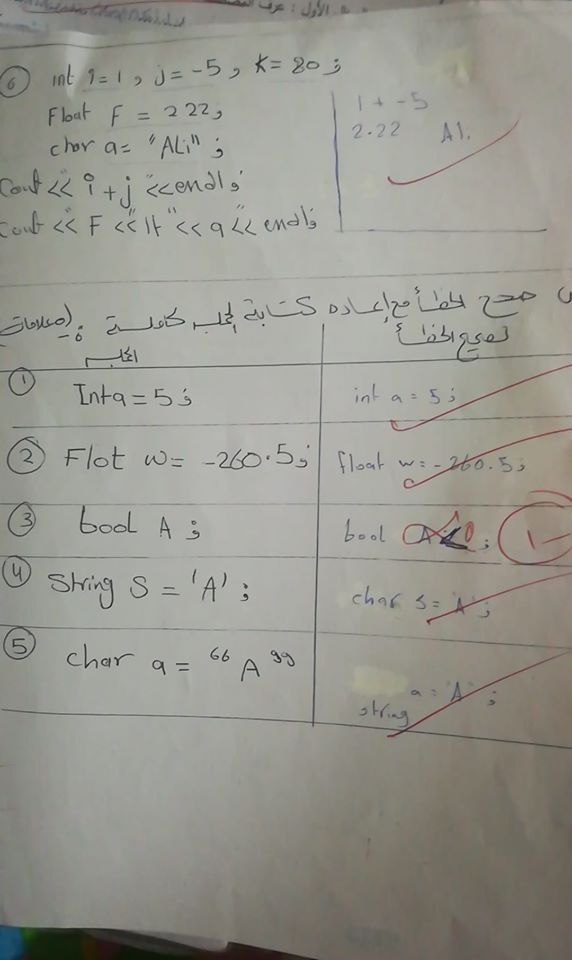 الأول : عرف
6 int i=1, j=-5, K=80;
Float F = 2.22;
char a= "ALi" ;
Cout << i+j <<endl;
Cout << F << "It" << a << endl;
1 + -5
2.22 A1.
صحح الخطأ مع إعاده كتابة الجمل كاملة :
الجمل
تصحيح الخطأ
1 Inta = 5;
int a = 5;
2 Flot w= -260.5;
float w= -260.5;
3 bool A ;
bool A ;
1-
4 String S = 'A' ;
char S= 'A';
5 char a = "A"
string a = 'A' ;